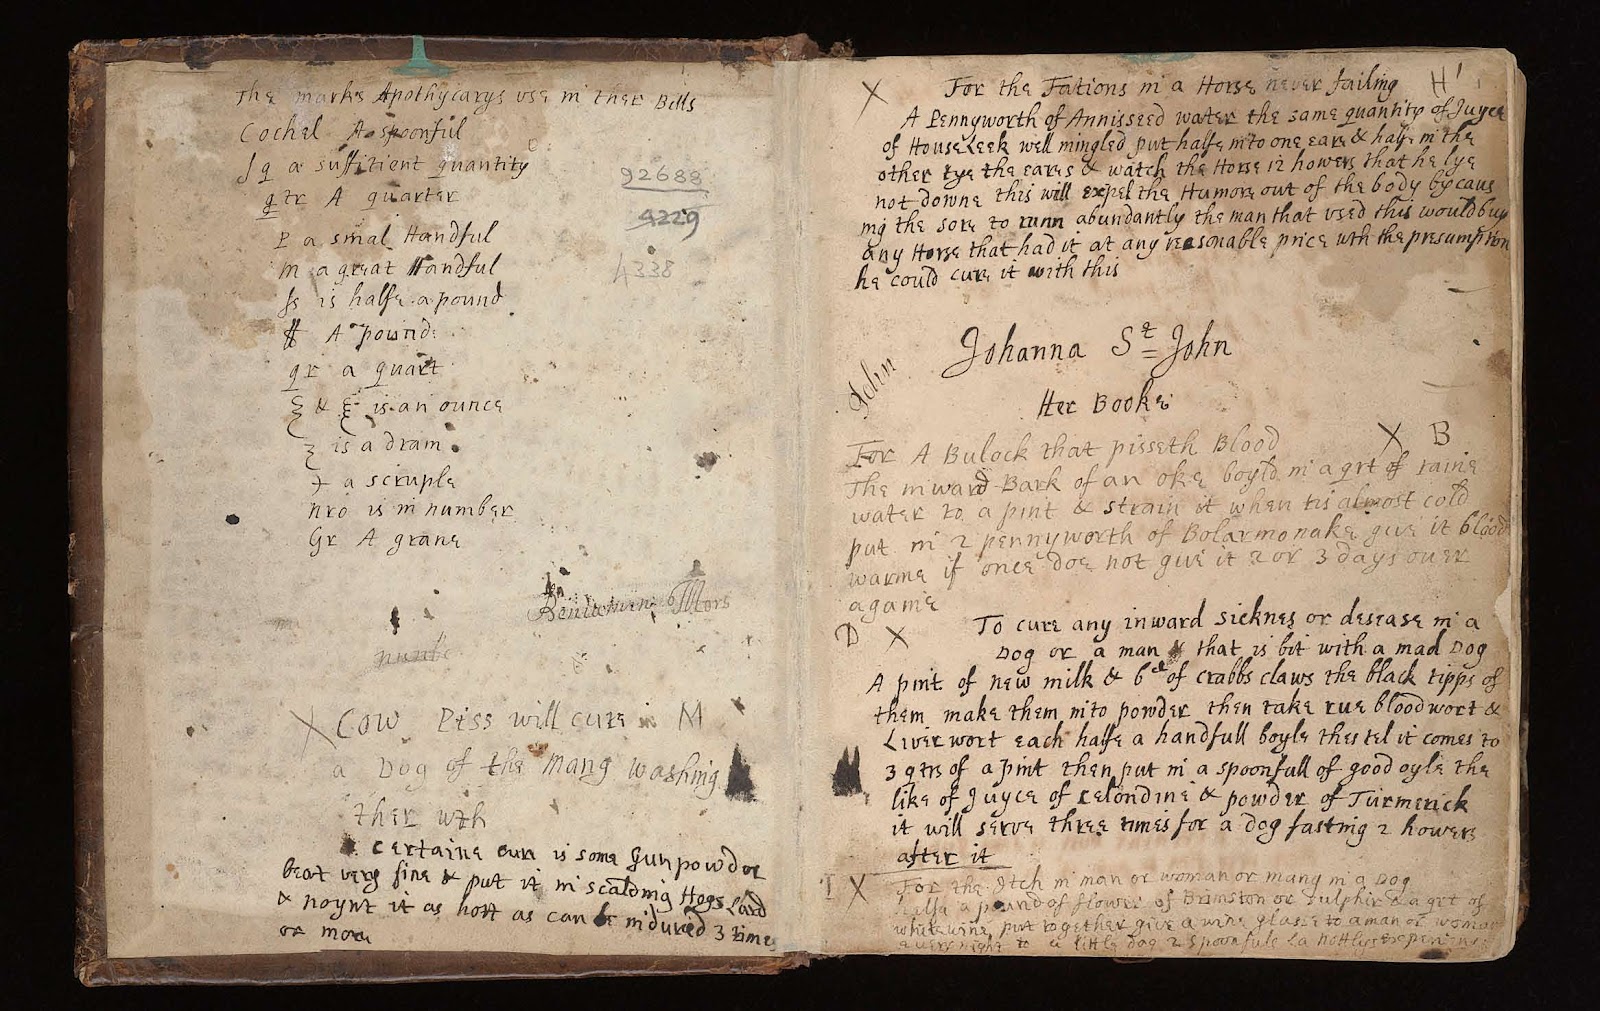 The marks Apothycarys use in ther Bills
Cochel A spoonful
Sq a suffitient quantity
qtr A quarter
P a smal Handful
M a great Handful
is halfe a pound
A pound
qr a quart
& is an ounce
ʒ is a dram
a scruple
nro is in number
Gr A grane
92688
4229
4338
X Cow Piss will cure M
a Dog of the Mang washing
ther wth
A certaine cure is some Gunpowder
beat very fine & put it in scalding Hogs Lard
& noynt it as hott as can be indured 3 times
or more
X For the Fations in a Horse never failing H
A Pennyworth of Annisseed water the same quantity of Juyce
of HouseLeek well mingled put halfe into one eare & halfe in the
other tye the eares & watch the Horse 12 howers that he lye
not downe this will expel the Humore out of the body by caus
ing the sore to runn abundantly the man that used this would buy
any Horse that had it at any reasonable price wth the presumption
he could cure it with this
Johanna St John
John
Her Booke
X B
For A Bulock that pisseth Blood
The inward Bark of an oke boyld in a qrt of raine
water to a pint & strain it when tis almost cold
put in 2 pennyworth of Bolarmonake give it blood
warme if once doe not give it 2 or 3 days over
againe
D X To cure any inward sicknes or desease in a
Dog or a man that is bit with a mad Dog
A pint of new milk & 6d of crabbs claws the black tipps of
them make them into powder then take rue bloodwort &
Liverwort each halfe a handfull boyle thes tel it comes to
3 qtrs of a pint then put in a spoonfull of good oyle the
like of Juyce of celondine & powder of Turmerick
it will serve three times for a dog fasting 2 howers
after it
I X For the Itch in man or woman or mang in a Dog
halfe a pound of flower of Brimston or sulphir & a qrt of
whitewine put together give a wine glasse to a man or woman
every night to a little dog 2 spoonfuls